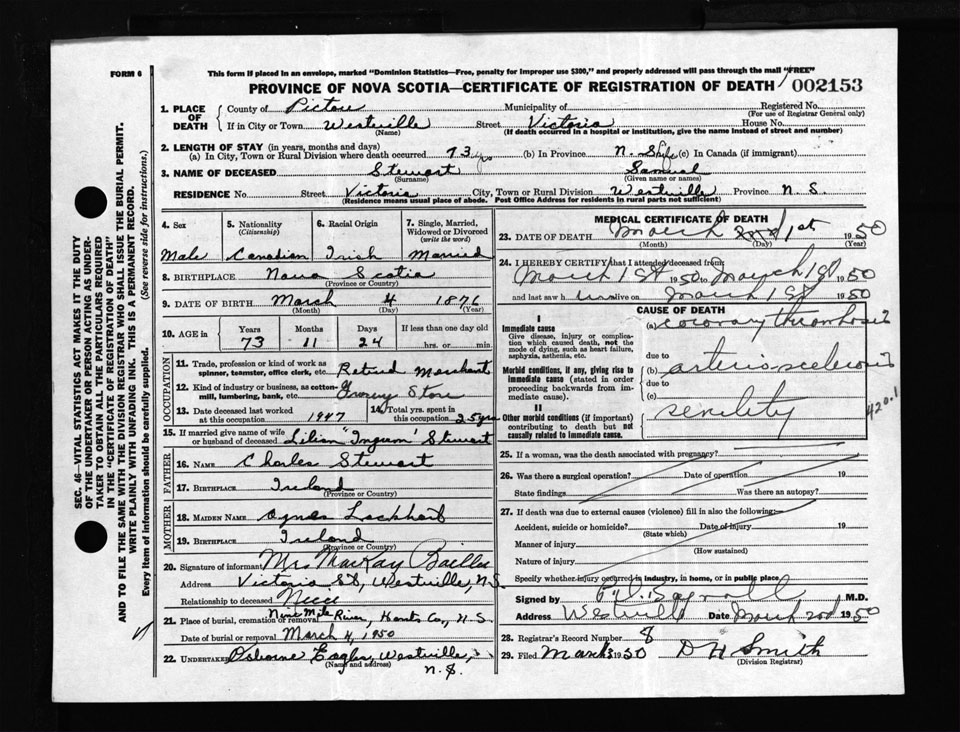 This form if placed in an envelope, marked "Dominion Statistics—Free, penalty for improper use $300," and properly addressed will pass through the mail "FREE"
FORM 6
PROVINCE OF NOVA SCOTIA—CERTIFICATE OF REGISTRATION OF DEATH 002153
SEC. 46—VITAL STATISTICS ACT MAKES IT THE DUTY
OF THE UNDERTAKER OR PERSON ACTING AS UNDER-
TAKER TO OBTAIN ALL THE PARTICULARS REQUIRED
IN THE "CERTIFICATE OF REGISTRATION OF DEATH"
AND TO FILE THE SAME WITH THE DIVISION REGISTRAR WHO SHALL ISSUE THE BURIAL PERMIT.
WRITE PLAINLY WITH UNFADING INK. THIS IS A PERMANENT RECORD.
Every item of information should be carefully supplied. (See reverse side for instructions.)
1. PLACE OF DEATH
County of Pictou Municipality of Registered No.
(For use of Registrar General only)
If in City or Town Westville Street Victoria House No.
(Name) (If death occurred in a hospital or institution, give the name instead of street and number)
2. LENGTH OF STAY (in years, months and days)
(a) In City, Town or Rural Division where death occurred 73 yrs (b) In Province N. S. life (c) In Canada (if immigrant)
3. NAME OF DECEASED Stewart Samuel
(Surname) (Given name or names)
RESIDENCE No. Street Victoria City, Town or Rural Division Westville Province N. S.
(Residence means usual place of abode. Post Office Address for residents in rural parts not sufficient)
4. Sex 5. Nationality (Citizenship) 6. Racial Origin 7. Single, Married, Widowed or Divorced (write the word)
Male Canadian Irish Married
8. BIRTHPLACE Nova Scotia
(Province or Country)
9. DATE OF BIRTH March 4 1876
(Month) (Day) (Year)
10. AGE in Years Months Days If less than one day old
73 11 24 hrs. or min.
OCCUPATION
11. Trade, profession or kind of work as spinner, teamster, office clerk, etc. Retired Merchant
12. Kind of industry or business, as cotton-mill, lumbering, bank, etc. Grocery Store
13. Date deceased last worked at this occupation 1947 14. Total yrs. spent in this occupation 25 yrs
15. If married give name of wife or husband of deceased Lilian "Ingram" Stewart
FATHER
16. NAME Charles Stewart
17. BIRTHPLACE Ireland
(Province or Country)
MOTHER
18. MAIDEN NAME Agnes Lockhart
19. BIRTHPLACE Ireland
(Province or Country)
20. Signature of informant Mrs MacKay Baillie
Address Victoria St, Westville, N.S
Relationship to deceased Niece
21. Place of burial, cremation or removal Nine Mile River, Hants Co, N. S.
Date of burial or removal March 4, 1950
22. UNDERTAKER Osborne Eagles, Westville, N. S.
(Name and address)
MEDICAL CERTIFICATE OF DEATH
23. DATE OF DEATH March 1st 1950
(Month) (Day) (Year)
24. I HEREBY CERTIFY that I attended deceased from:
March 1st 1950 March 1st 1950
and last saw h im alive on March 1st 1950
CAUSE OF DEATH
I
Immediate cause
Give disease, injury or complication which caused death, not the mode of dying, such as heart failure, asphyxia, asthenia, etc.
(a) coronary thrombosis
due to
Morbid conditions, if any, giving rise to immediate cause (stated in order proceeding backwards from immediate cause).
(b) arterio sclerosis
due to
(c)
II
Other morbid conditions (if important) contributing to death but not causally related to immediate cause.
senility
420.1
25. If a woman, was the death associated with pregnancy?
26. Was there a surgical operation? Date of operation 19
State findings Was there an autopsy?
27. If death was due to external causes (violence) fill in also the following:—
Accident, suicide or homicide? Date of injury 19
(State which)
Manner of injury
(How sustained)
Nature of injury
Specify whether injury occurred in industry, in home, or in public place
Signed by M.D.
Address Westville Date March 2nd 1950
28. Registrar's Record Number 8
29. Filed March 3 1950 D H Smith
(Division Registrar)